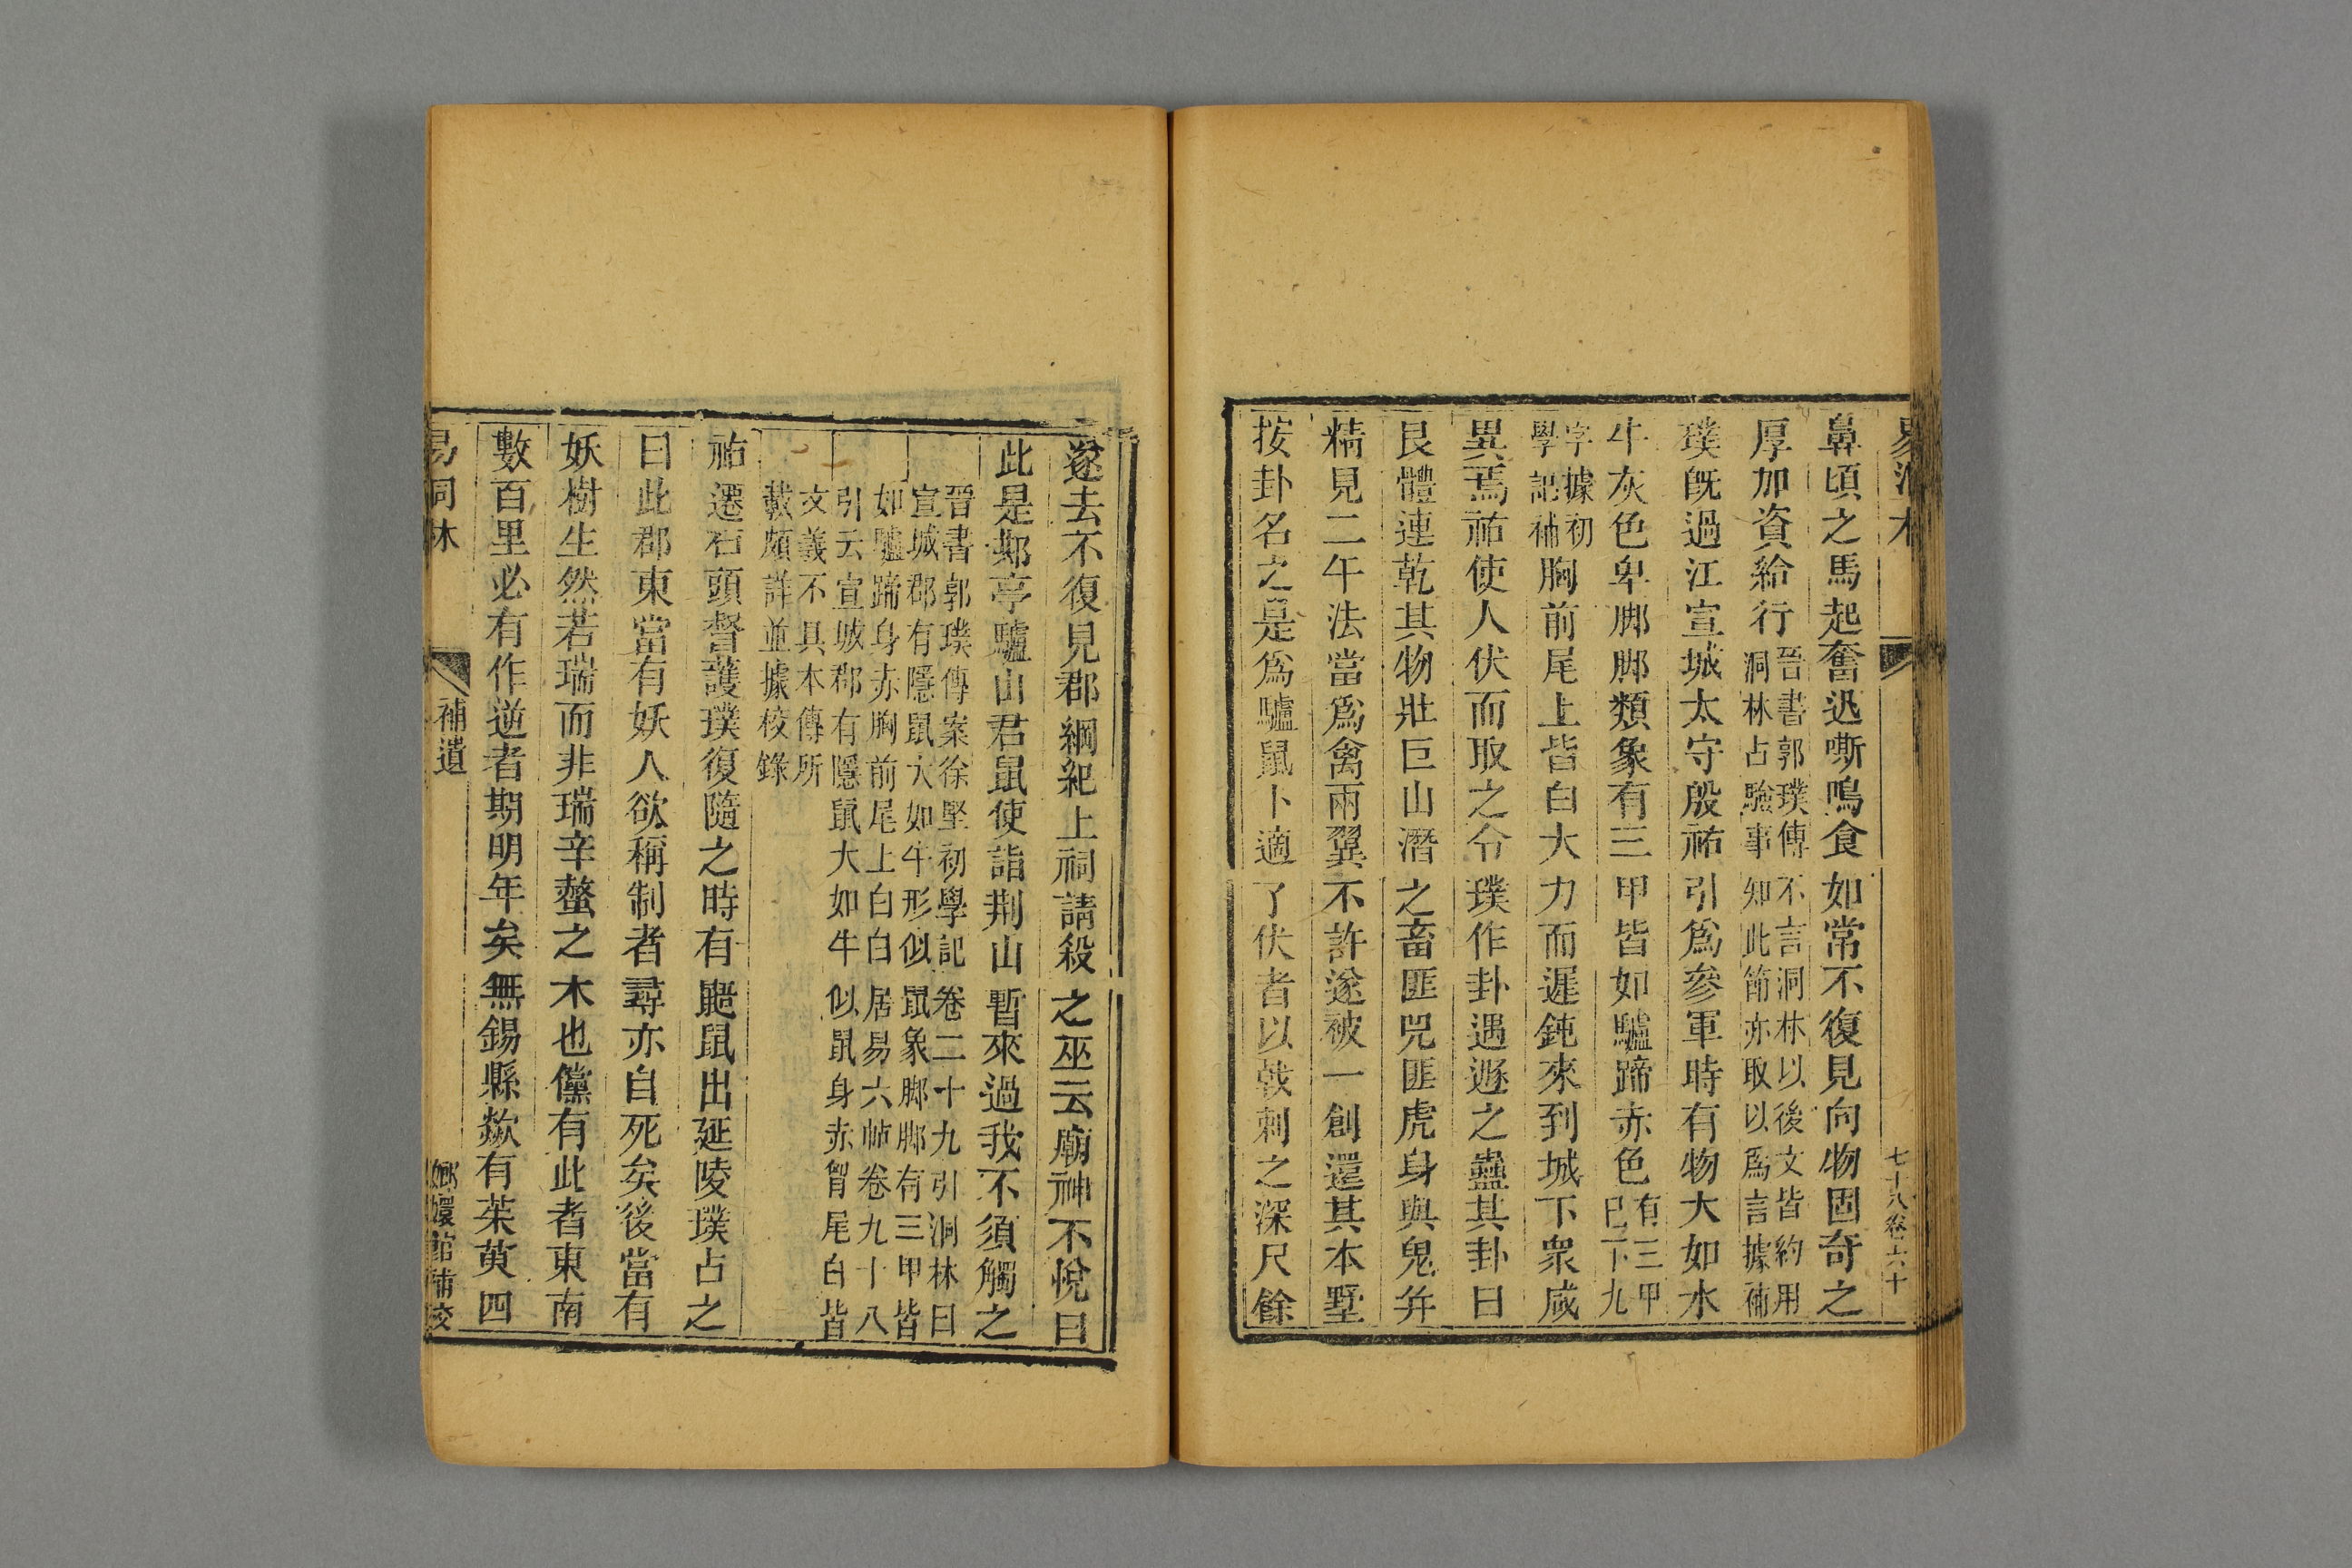 鼻頃之馬起奮迅嘶鳴食如常不復見向物固奇之
厚加資給行晉書郭璞傳不言洞林以後文皆約用
洞林占驗事知此節亦取以爲言據補
璞旣過江宣城太守殷祐引爲參軍時有物大如水
牛灰色卑脚脚類象有三甲皆如驢蹄赤色有三甲
已下九
字據初
學記補胸前尾上皆白大力而遲鈍來到城下衆咸
異焉祐使人伏而取之令璞作卦遇遯之蠱其卦曰
艮體連乾其物壯巨山潛之畜匪兕匪虎身與鬼幷
精見二午法當爲禽兩翼不許遂被一創還其本墅
按卦名之是爲驢鼠卜適了伏者以戟刺之深尺餘
七十八卷六十
遂去不復見郡綱紀上祠請殺之巫云廟神不悅曰
此是䢼亭驢山君鼠使詣荆山暫來過我不須觸之
晉書郭璞傳案徐堅初學記卷二十九引洞林曰
宣城郡有隱鼠大如牛形似鼠象脚脚有三甲皆
如驢蹄身赤胸前尾上白白居易六帖卷九十八
引云宣城郡有隱鼠大如牛似鼠身赤胷尾白皆
文義不具本傳所
載頗詳並據校錄
祐遷石頭督護璞復隨之時有鼯鼠出延陵璞占之
曰此郡東當有妖人欲稱制者尋亦自死矣後當有
妖樹生然若瑞而非瑞辛螫之木也儻有此者東南
數百里必有作逆者期明年矣無錫縣欻有茱萸四
易洞林
補遺
嫏嬛館補校